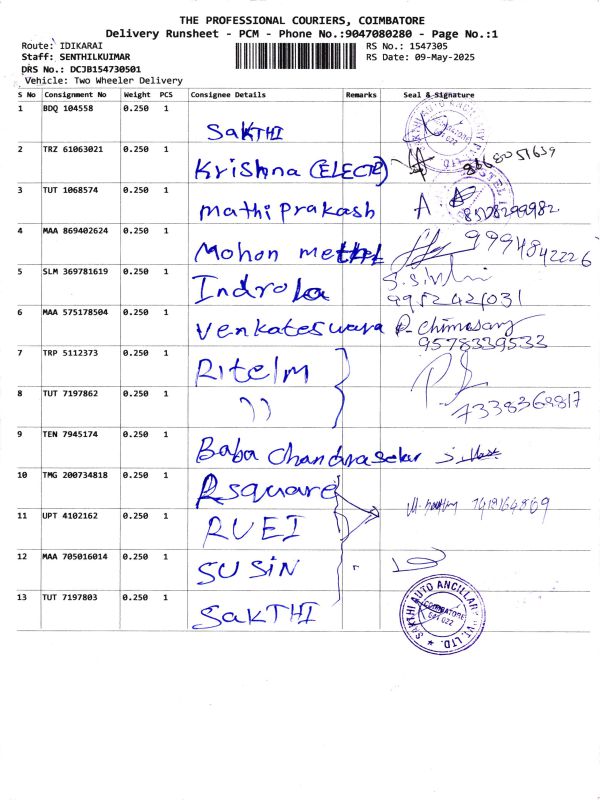 THE PROFESSIONAL COURIERS, COIMBATORE
Delivery Runsheet - PCM - Phone No.:9047080280 - Page No.:1
Route: IDIKARAI RS No.: 1547305
Staff: SENTHILKUIMAR RS Date: 09-May-2025
DRS No.: DCJB154730501
Vehicle: Two Wheeler Delivery
S No Consignment No Weight PCS Consignee Details Remarks Seal & Signature
1 BDQ 104558 0.250 1 SAKTHI
2 TRZ 61063021 0.250 1 Krishna (ELECTE)
3 TUT 1068574 0.250 1 mathi prakash 8508299982
4 MAA 869402624 0.250 1 Mohan 9994842226
5 SLM 369781619 0.250 1 Indrola
6 MAA 575178504 0.250 1 Venkateswara
9578339533
7 TRP 5112373 0.250 1 Ritelm
8 TUT 7197862 0.250 1 )) 7338368817
9 TEN 7945174 0.250 1 Baba Chandrasekar
10 TMG 200734818 0.250 1 Rsquare
11 UPT 4102162 0.250 1 RUEI
12 MAA 705016014 0.250 1 SUSIN
13 TUT 7197803 0.250 1 SAKTHI
SAKTHI AUTO ANCILLARY PVT. LTD.
COIMBATORE
641 022